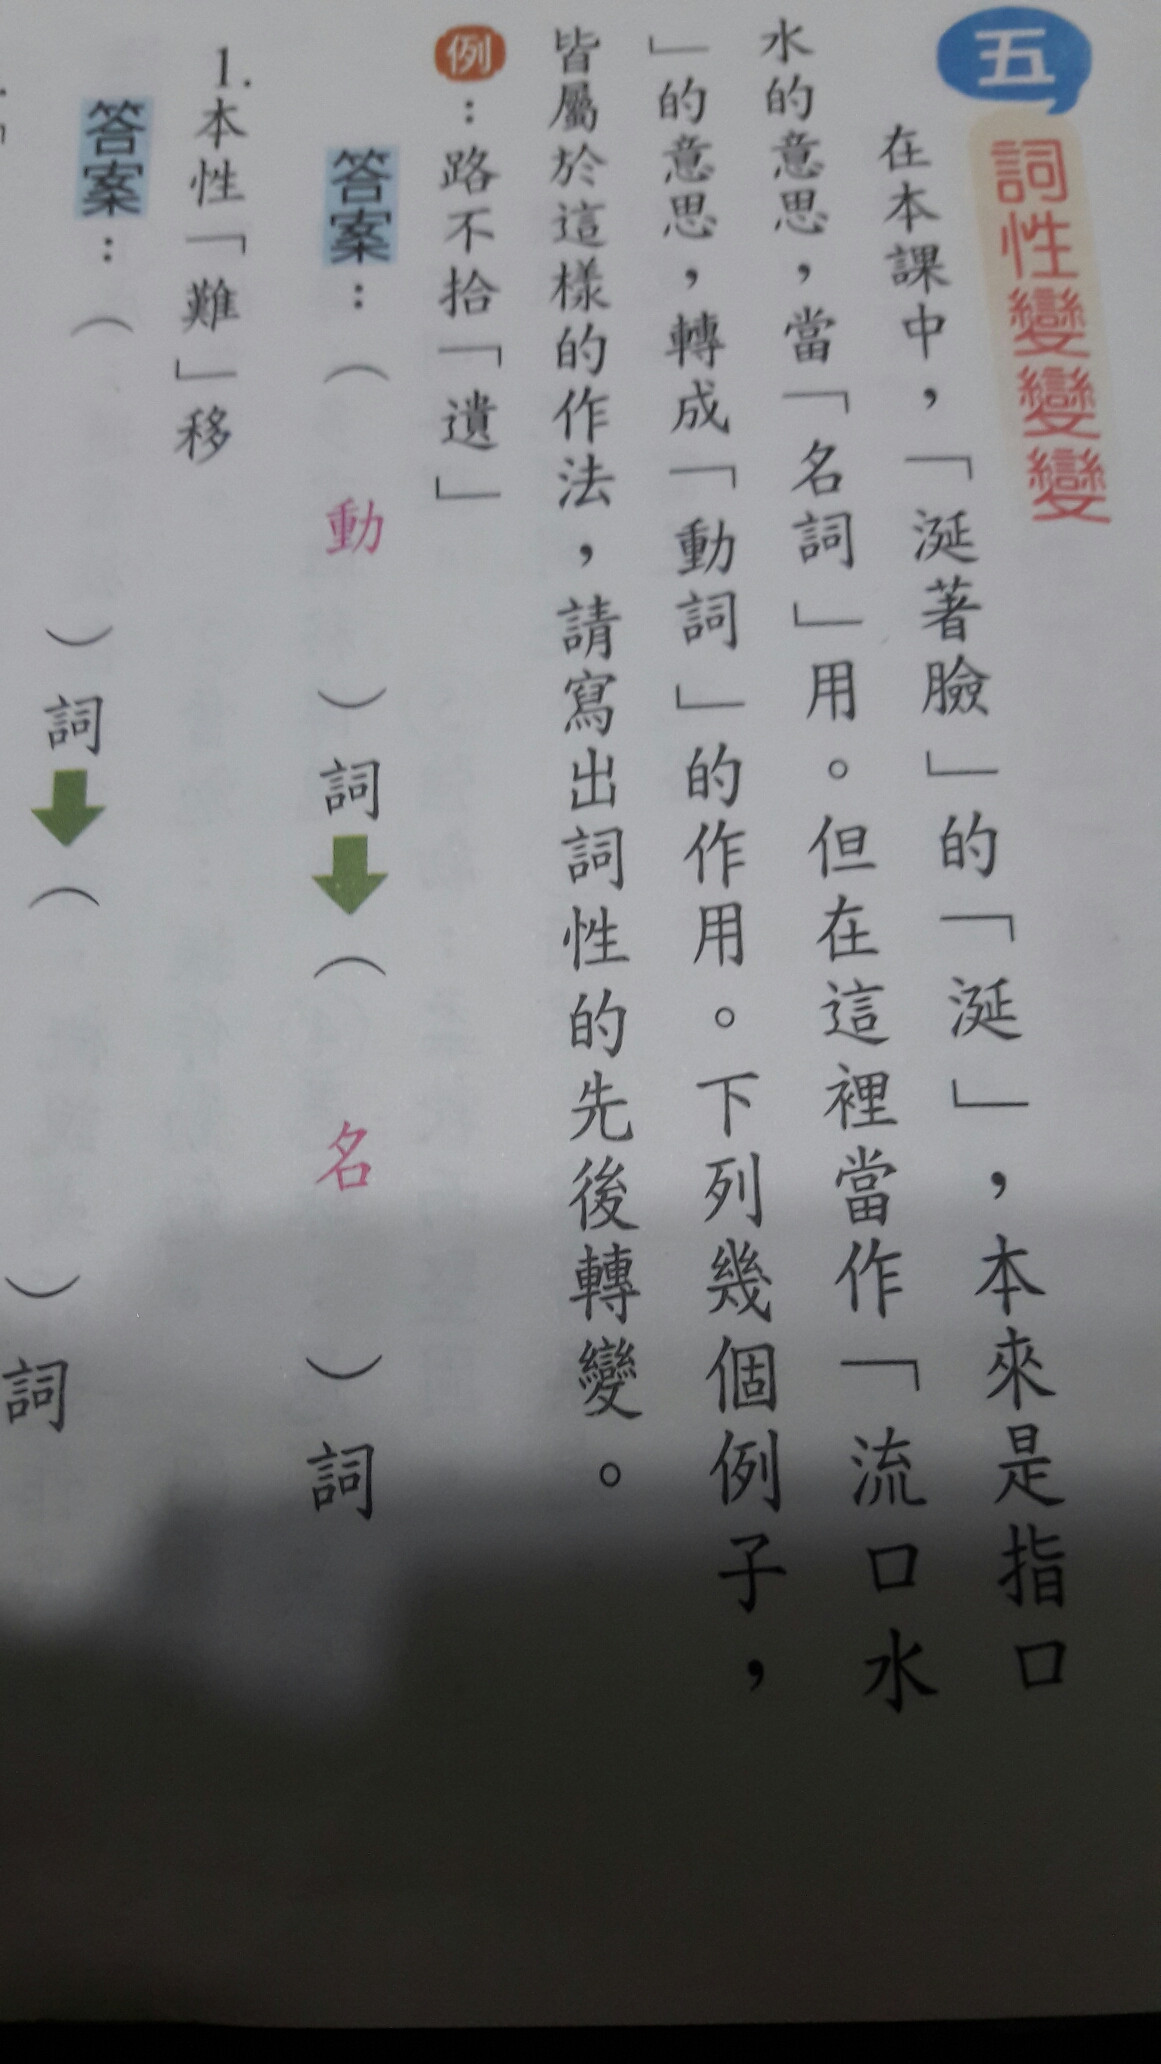 五
詞性變變變
在本課中，「涎著臉」的「涎」，本來是指口
水的意思，當「名詞」用。但在這裡當作「流口水
」的意思，轉成「動詞」的作用。下列幾個例子，
皆屬於這樣的作法，請寫出詞性的先後轉變。
例：路不拾「遺」
答案：（動）詞⬇（名）詞
1.本性「難」移
答案：（　）詞⬇（　）詞